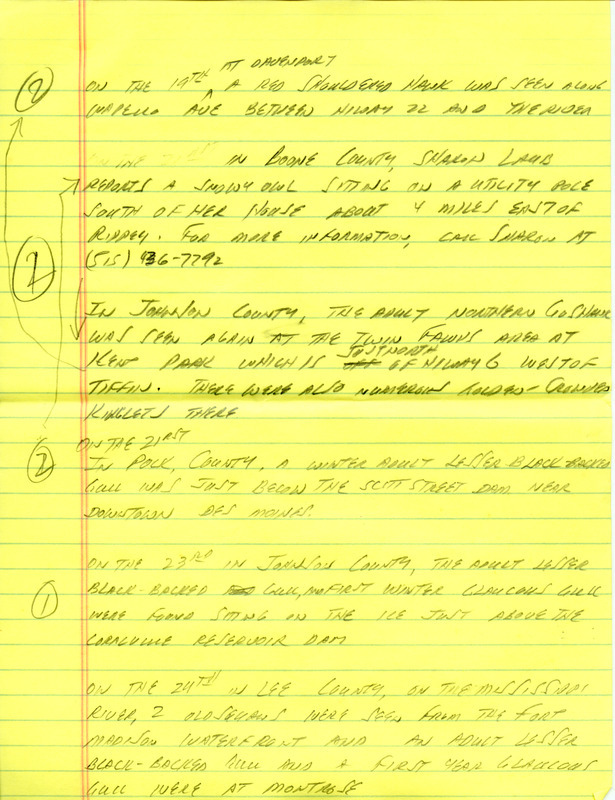 AT DAVENPORT
② ON THE 19TH ^ A RED SHOULDERED HAWK WAS SEEN ALONG
WAPELLO AVE BETWEEN HIWAY 22 AND THE RIVER
IN BOONE COUNTY, SHARON LAMB
REPORTS A SNOWY OWL SITTING ON A UTILITY POLE
SOUTH OF HER HOUSE ABOUT 4 MILES EAST OF
RIPPEY. FOR MORE INFORMATION, CALL SHARON AT
② (515) 436-7792
IN JOHNSON COUNTY, THE ADULT NORTHERN GOSHAWK
WAS SEEN AGAIN AT THE TWIN FAWNS AREA AT
JUST NORTH
KENT PARK WHICH IS OF HIWAY 6 WEST OF
TIFFIN. THERE WERE ALSO NUMEROUS GOLDEN-CROWNED
KINGLETS THERE
ON THE 21RST
② IN POLK, COUNTY, A WINTER ADULT LESSER BLACK-BACKED
GULL WAS JUST BELOW THE SCOTT STREET DAM NEAR
DOWNTOWN DES MOINES.
ON THE 23RD IN JOHNSON COUNTY, THE ADULT LESSER
① BLACK-BACKED GULL, AND FIRST WINTER GLAUCOUS GULL
WERE FOUND SITING ON THE ICE JUST ABOVE THE
CORALVILLE RESERVOIR DAM
ON THE 24TH IN LEE COUNTY, ON THE MISSISSIPPI
RIVER, 2 OLDSQUAWS WERE SEEN FROM THE FORT
MADISON WATERFRONT AND AN ADULT LESSER
BLACK-BACKED GULL AND A FIRST YEAR GLAUCOUS
GULL WERE AT MONTROSE